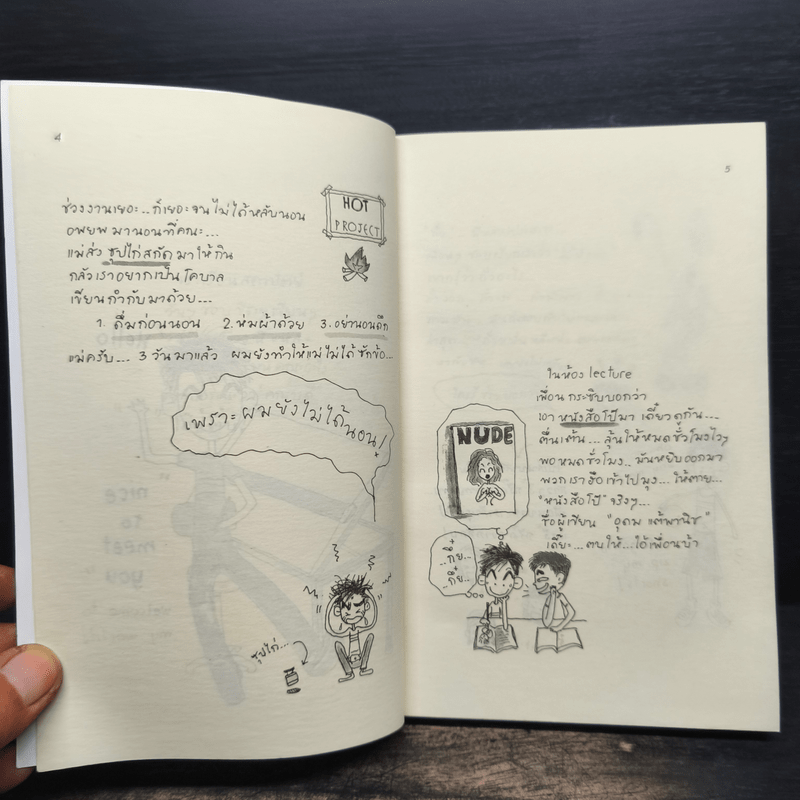 4
HOT
PROJECT
ช่วงงานเยอะ.. ก็เยอะจนไม่ได้หลับนอน
อพยพมานอนที่คณะ...
แม่ส่ง ซุปไก่สกัด มาให้กิน
กลัวเราอยากเป็นโคบาล
เขียนกำกับมาด้วย...
1. ดื่มก่อนนอน 2. ห่มผ้าด้วย 3. อย่านอนดึก
แม่ครับ.... 3 วันมาแล้ว ผมยังทำให้แม่ไม่ได้ซักข้อ...
เพราะผมยังไม่ได้นอน!
ซุปไก่....
nice
to
meet
you
5
ในห้อง lecture
เพื่อนกระซิบบอกว่า
เอา หนังสือโป๊มา เดี๋ยวดูกัน...
ตื่นเต้น ... ลุ้นให้หมดชั่วโมงไวๆ
พอหมดชั่วโมง.. มันหยิบออกมา
พวกเราฮือเข้าไปมุง ... ให้ตาย...
"หนังสือโป๊" จริงๆ...
ชื่อผู้เขียน "อุดม แต้พานิช"
เดี๊ยะ... ตบให้...ไอ้เพื่อนบ้า
NUDE
..กึ๋ย..
..กึ๋ย..